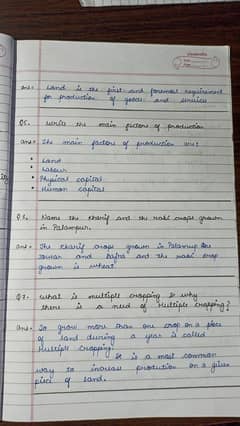 Ans:- Land is the first and foremost requirement
for production of goods and services
Q5. Write the main factors of production
Ans:- The main factors of production are:
• Land
• Labour
• Physical capital
• Human capital
Name the kharif and the rabi crops grown
in Palampur.
Ans:- The kharif crops grown in Palampur are
Jowar and bajra and the rabi crop
grown is wheat
Q7. What is multiple cropping & why
there is a need of Multiple cropping?
Ans:- To grow more than one crop on a piece
of land during a year is called
Multiple cropping.
It is a most common
way to increase production on a given
piece of land.